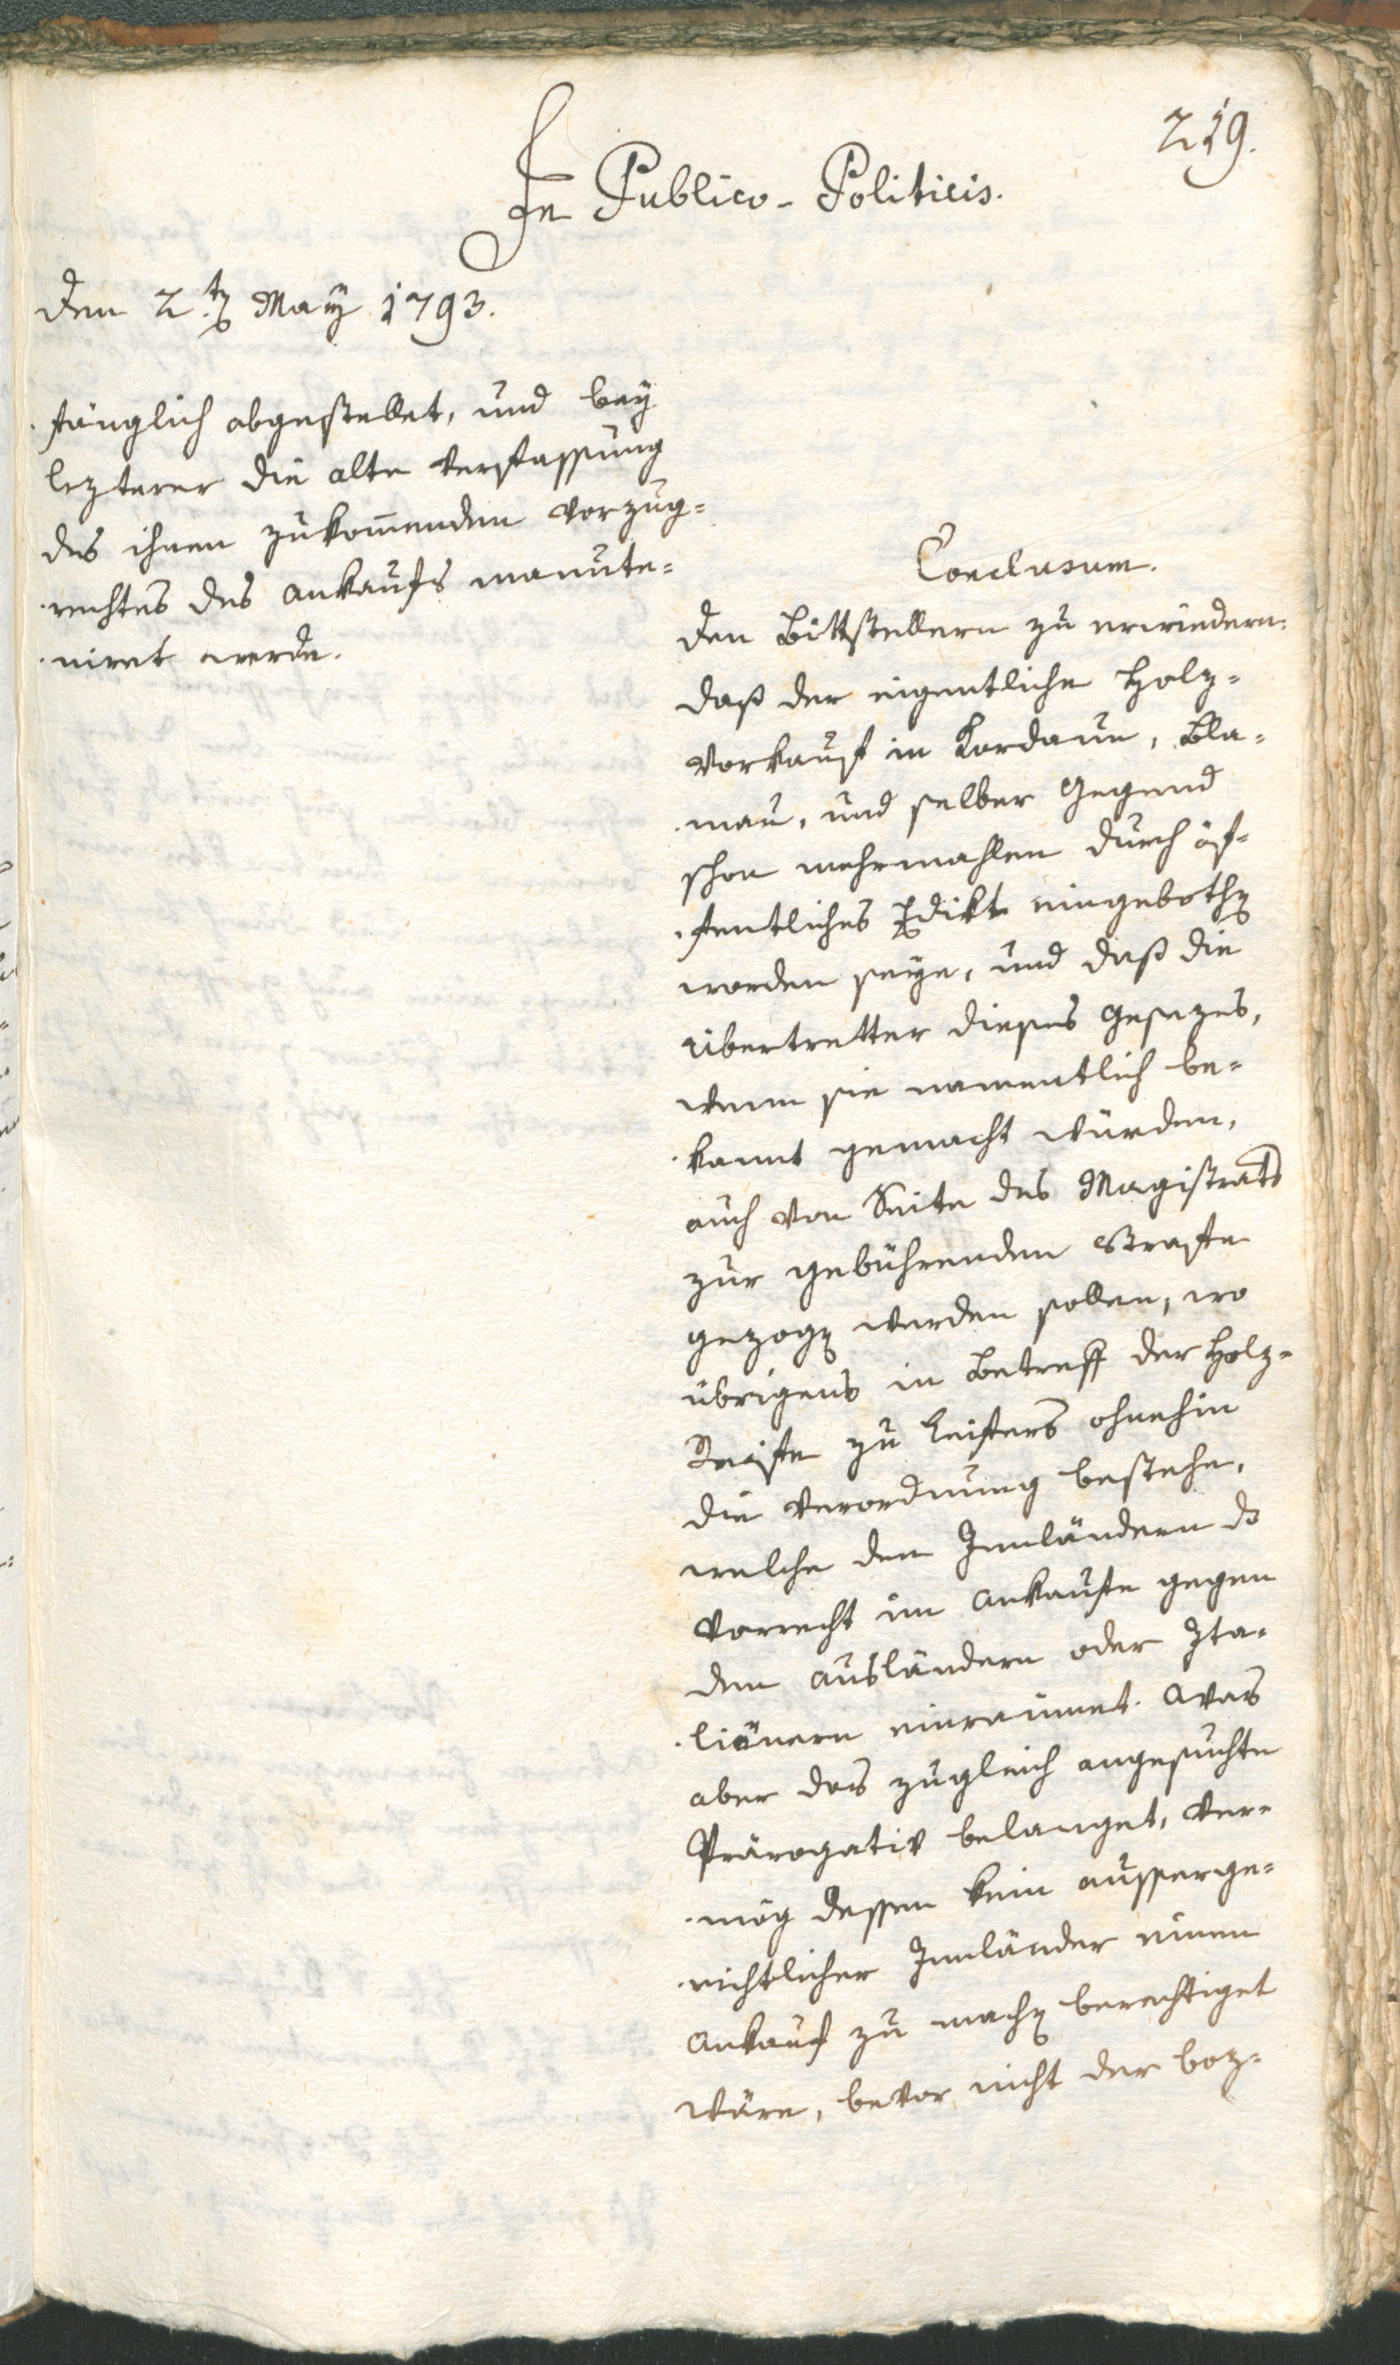 219.
In Publico-Politicis.
Den 2.ten May 1793.
fänglich abgestellet, und bey
lezterer die alte Verfassung
des ihnen zukom̄enden Vorzug=
rechtes des Ankaufs manute=
niret werde.
Conclusum.
Den Bittstellern zu erwiedern:
daß der eigentliche Holz=
Vorkauf in Kardaun, Blu=
mau, und selber Gegend
schon mehrmahlen durch öf=
fentliches Edikt eingebothen
worden seye, und daß die
Übertretter dieses Gesezes,
wenn sie namentlich be=
kannt gemacht würden,
auch von Seite des Magistrats
zur gebührenden Strafe
gezogen werden sollen, wo
übrigens in Betreff der Holz=
Reife zu Leifers ohnehin
die Verordnung bestehe,
welche den Innländern das
Vorrecht im Ankaufe gegen
den Ausländern oder Ita=
liänern einraumet. Was
aber das zugleich angesuchte
Prärogativ belanget, ver=
mög dessen kein ausserge=
richtlicher Innländer einen
Ankauf zu machen berechtiget
wäre, bevor nicht der boz=